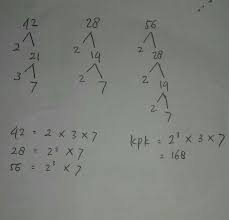 42 28 56
2 21 2 14 2 28
3 7 2 7 2 14
2 7
42 = 2 x 3 x 7
28 = 2² x 7
56 = 2³ x 7
kpk = 2³ x 3 x 7
= 168